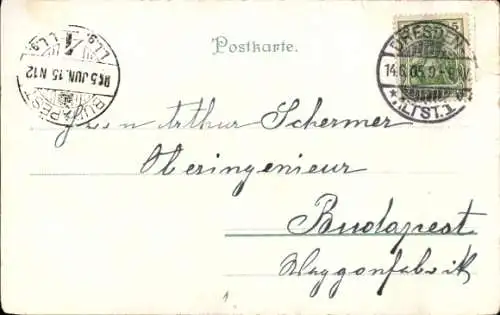 Postkarte.
5
DRESDEN
14.6.05.9-
* ALTST.1.
905 JUN.15 N12
BUDAPEST
Herrn Arthur Schermer
Oberingenieur
Budapest
Waggonfabrik